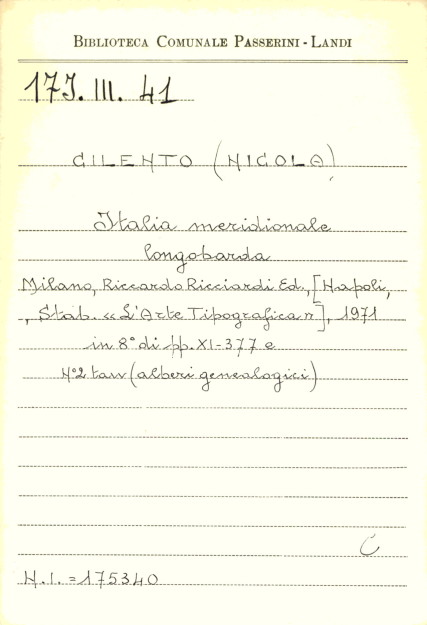 BIBLIOTECA COMUNALE PASSERINI - LANDI
17J. III. 41
CILENTO (NICOLA)
Italia meridionale
longobarda
Milano, Riccardo Ricciardi Ed., [Napoli,
, Stab. «L'Arte Tipografica»], 1971
in 8° di pp. XI-377 e
N°2 tav (alberi genealogici)
C
N.I. = 175340